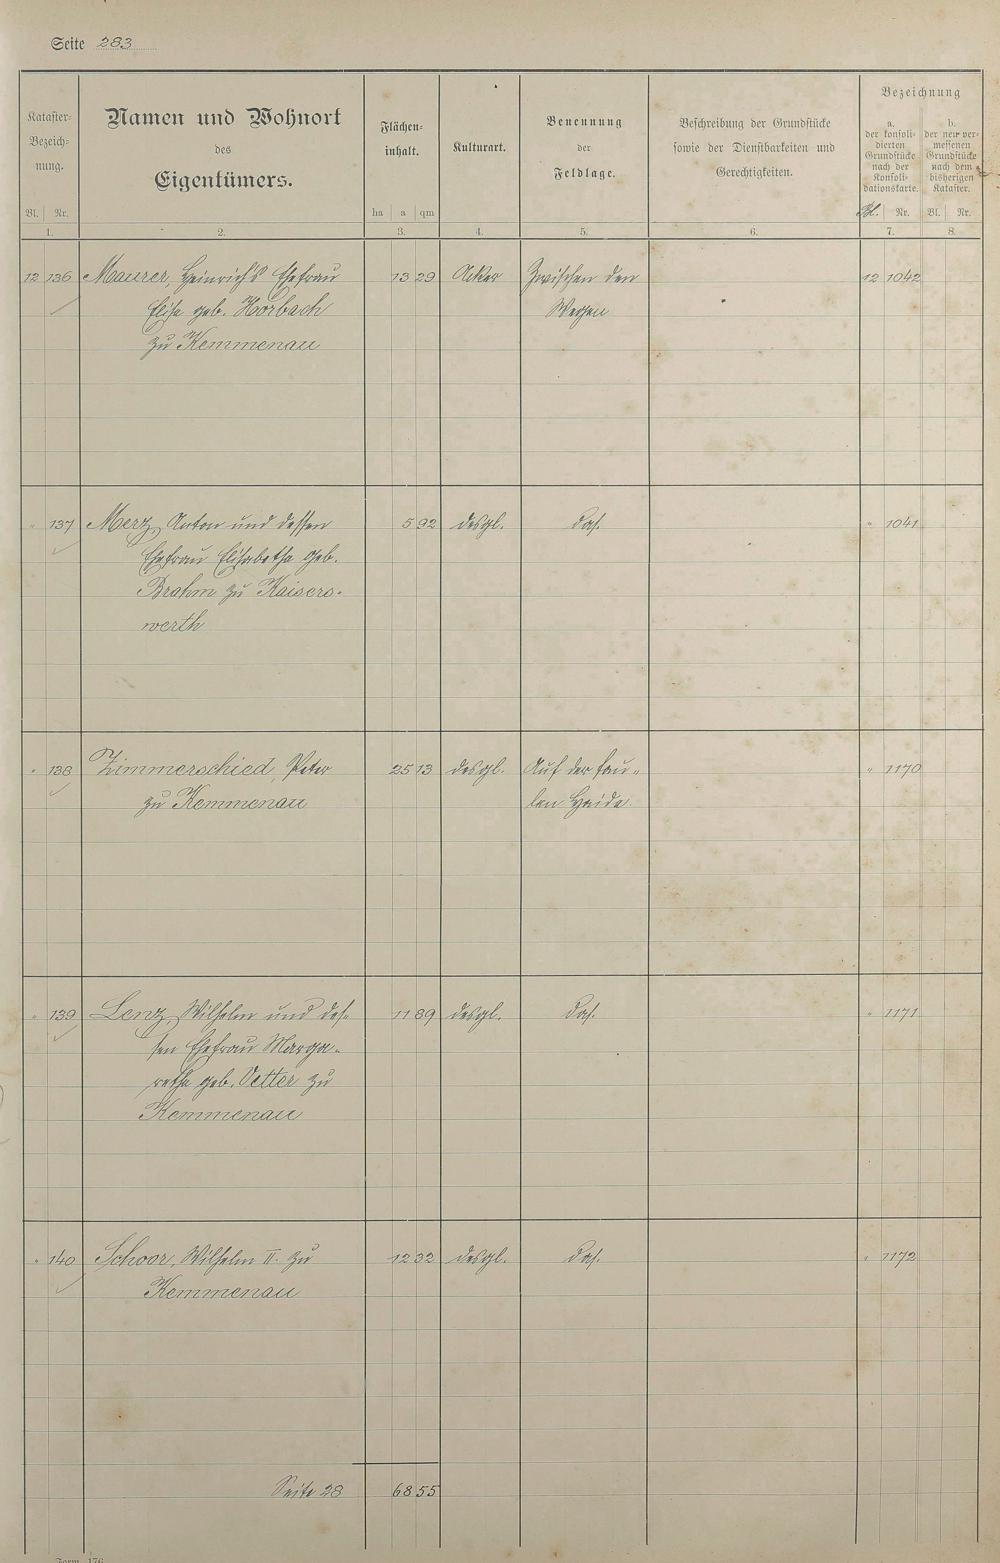 Seite 283
Kataster-Bezeichnung.
Bl. Nr.
1.
Namen und Wohnort
des
Eigentümers.
2.
Flächen-
inhalt.
ha a qm
3.
Kulturart.
4.
Benennung
der
Feldlage.
5.
Beschreibung der Grundstücke
sowie der Dienstbarkeiten und
Gerechtigkeiten.
6.
Bezeichnung
a.
der konsoli-
dierten
Grundstücke
nach der
Konsoli-
dationskarte.
Bl. Nr.
7.
b.
der neu ver-
messenen
Grundstücke
nach dem
bisherigen
Kataster.
Bl. Nr.
8.
12 136 Maurer, Heinrich's Ehefrau 13 29 Acker Zwischen den 12 1042
Elise geb. Horbach Wegen
zu Kemmenau
" 137 Merz, Anton und dessen 5 92 desgl. das. " 1041
Ehefrau Elisabetha geb.
Brahm zu Kaisers-
werth
" 138 Zimmerschied, Peter 25 13 desgl. Auf der fau- " 1170
zu Kemmenau len Haide.
" 139 Lenz, Wilhelm und des- 11 89 desgl. das. " 1171
sen Ehefrau Marga-
retha geb. Vetter zu
Kemmenau
" 140 Schoor, Wilhelm II. zu 12 32 desgl. das. " 1172
Kemmenau
Seite 28 68 55
Form. 176